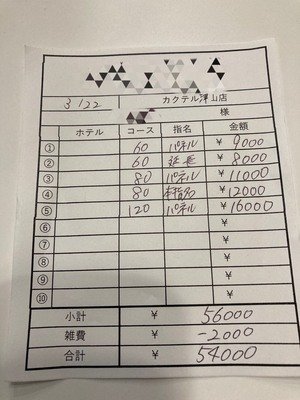 3/22 カクテル津山店
様
ホテル コース 指名 金額
① 60 パネル ¥ 9000
② 60 延長 ¥ 8000
③ 80 パネル ¥ 11000
④ 80 本指名 ¥ 12000
⑤ 120 パネル ¥ 16000
⑥ ¥
⑦ ¥
⑧ ¥
⑨ ¥
⑩ ¥
小計 ¥ 56000
雑費 ¥ -2000
合計 ¥ 54000